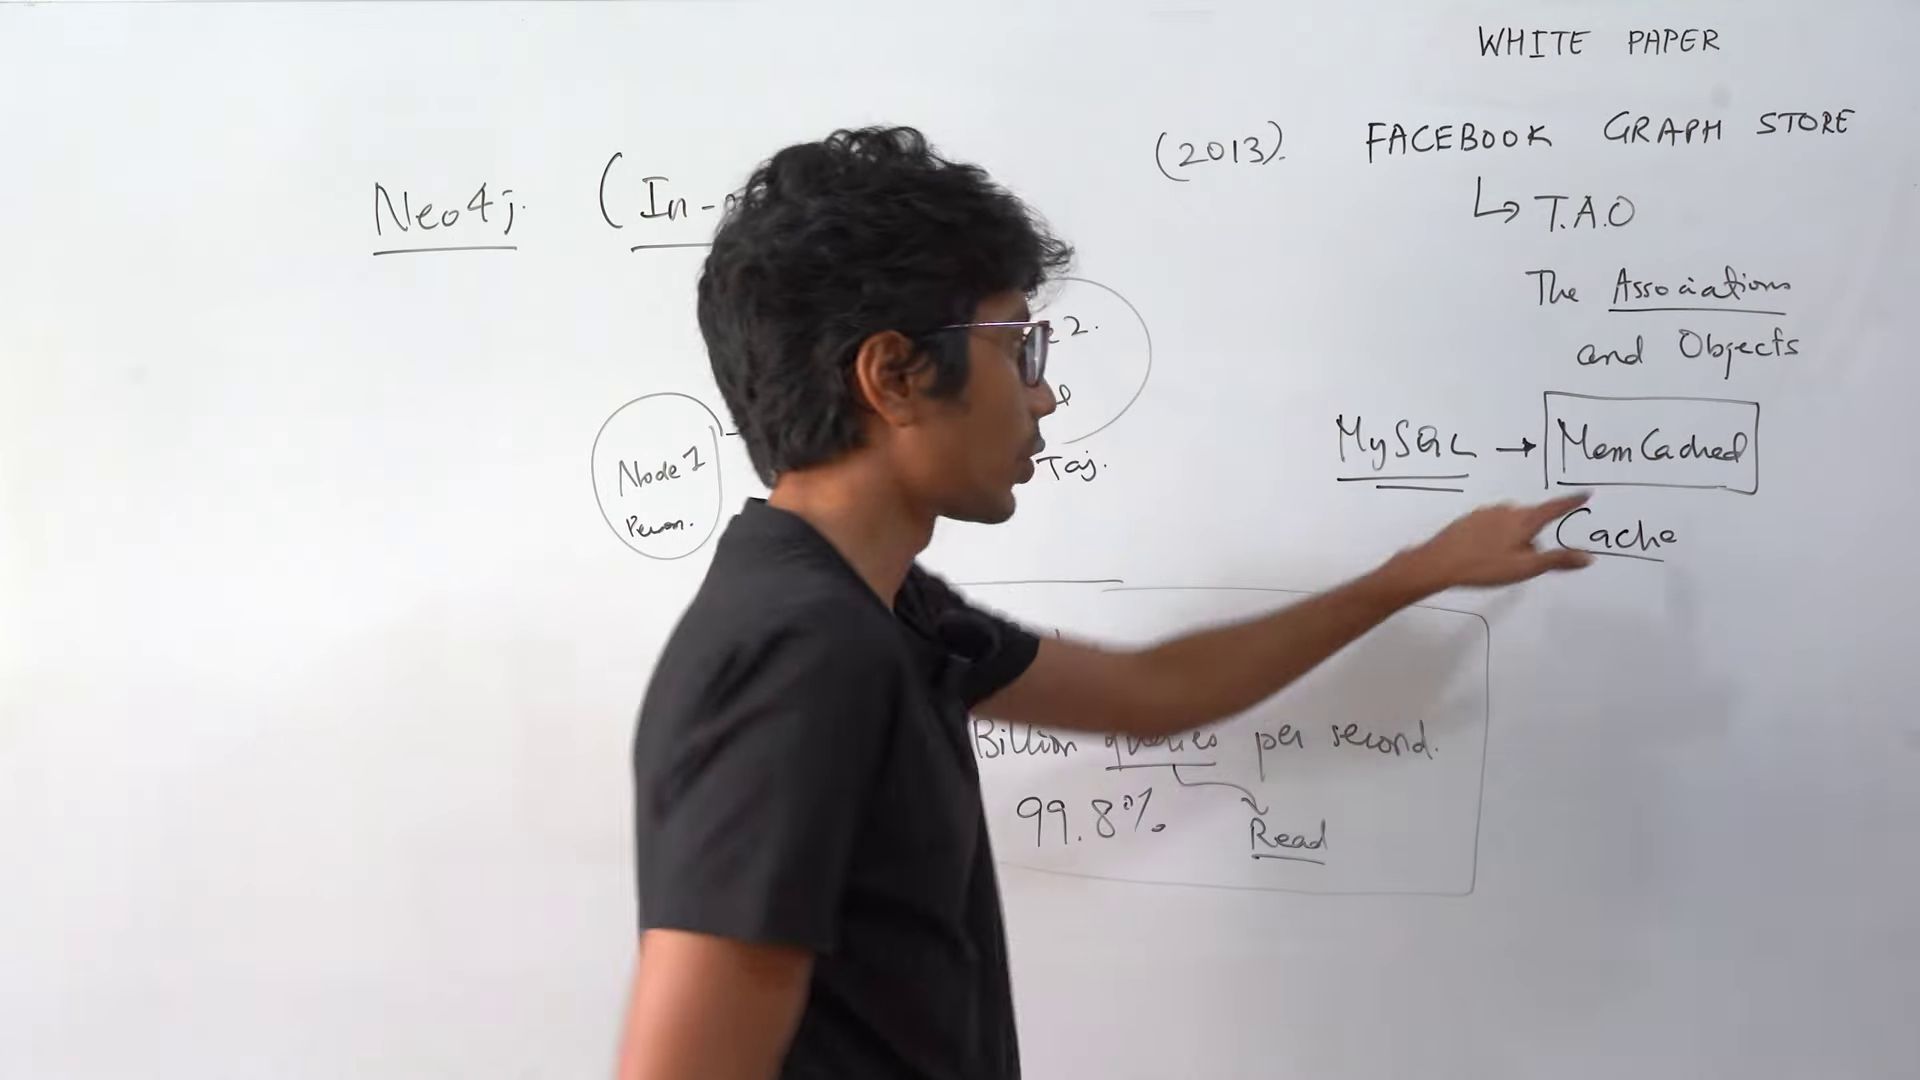 WHITE PAPER
(2013). FACEBOOK GRAPH STORE
↳ T.A.O
The Associations
and Objects
MySQL → MemCached
Cache
Neo4j. (In-
2.
Taj.
Node 1
Person.
Billion queries per second.
99.8%. Read